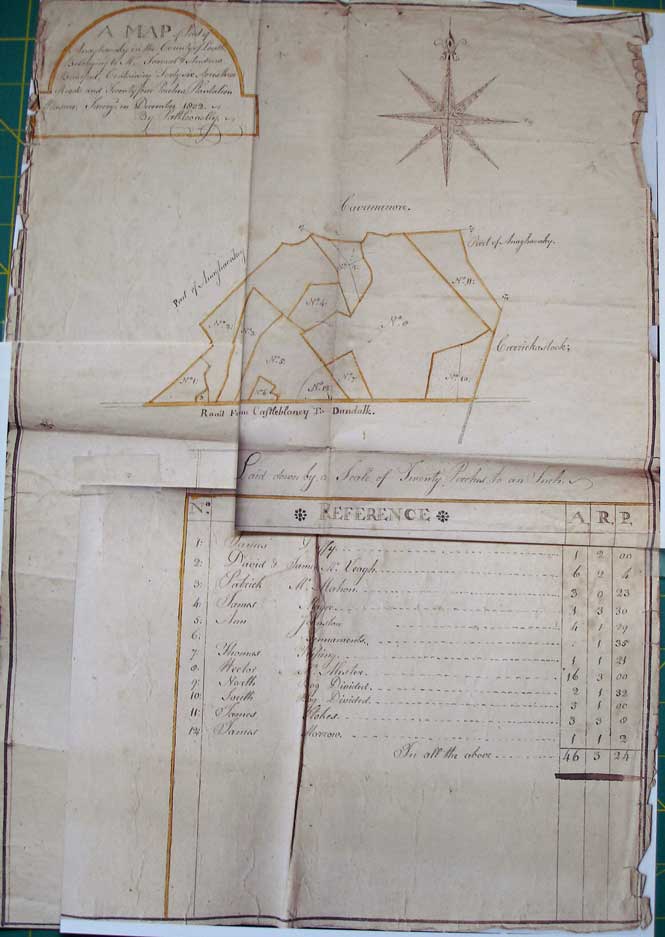 A MAP of Part of
Anaghavaky in the County of Louth
Belonging to Mr. Samuel & Andrew
Bradford, Containing Forty six Acres three
Roods and Twenty four Perches Plantation
Measure. Survey'd in December 1802.
By Patk Connolly.
Cavanmore.
Part of Anaghavaky
Part of Anaghavaky.
Carrickastock.
No. 1.
No. 2.
No. 3.
No. 4.
No. 5.
No. 6.
No. 7.
No. 8
No. 9.
No. 10.
No. 11.
No. 12.
Road From Castleblaney To Dundalk.
Laid down by a Scale of Twenty Perches to an Inch.
No. REFERENCE A. R. P.
1. James 1 2 00
2. David & James Mc Veagh 6 2 4
3. Patrick Mc Mahon 3 0 23
4. James 1 3 30
5. Ann Johnston 4 1 29
6. Tennaments . 1 35
7. Thomas 1 1 21
8. Hector Mc Master 16 3 00
9. North Bog Divided 2 1 32
10. South Bog Divided 3 1 00
11. James Stokes 3 3 8
12. James Morrow 1 1 2
In all the above 46 3 24